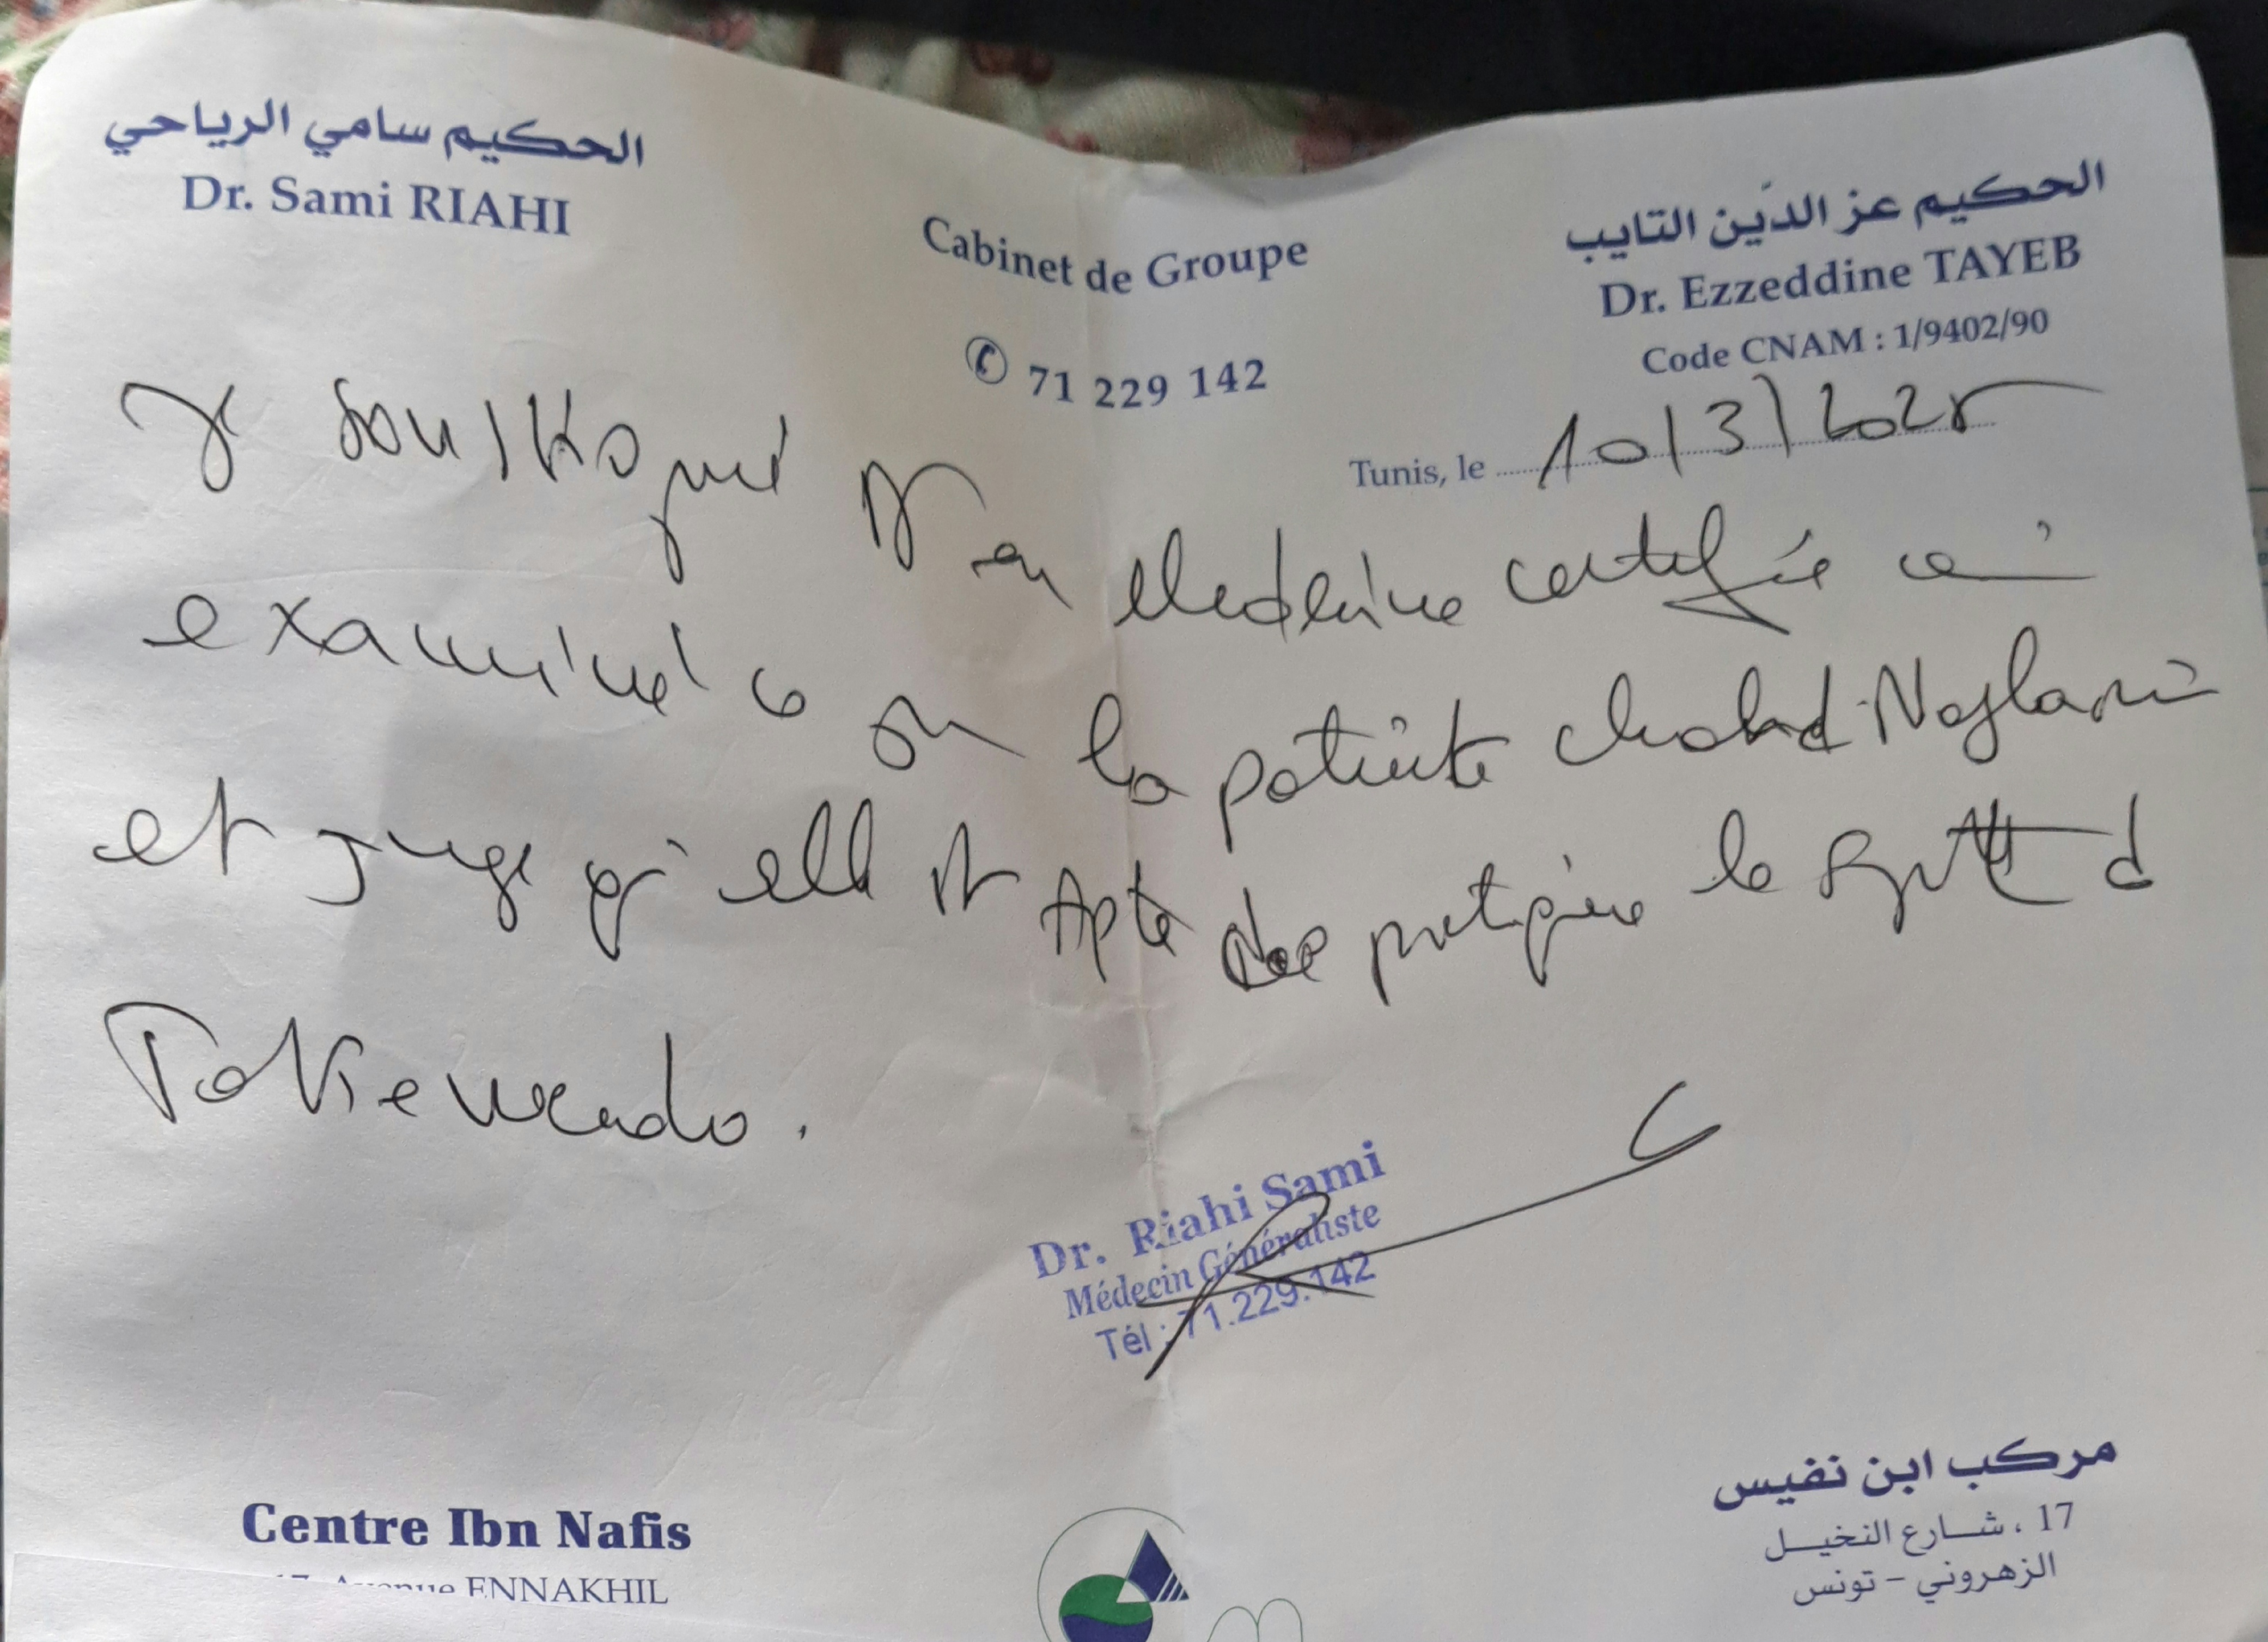 الحكيم سامي الرياحي
Dr. Sami RIAHI
Cabinet de Groupe
✆ 71 229 142
الحكيم عز الدّين التايب
Dr. Ezzeddine TAYEB
Code CNAM : 1/9402/90
Tunis, le 10/3/2025
Je soussigné Dr en Medecine certifie avoir
examiné ce jour la patiente Chahd
et juge qu'elle est Apte de pratiquer le sport d
Taekwendo.
Dr. Riahi Sami
Médecin Généraliste
Tél : 71.229.142
Centre Ibn Nafis
17, Avenue ENNAKHIL
مركب ابن نفيس
17 ، شارع النخيل
الزهروني - تونس